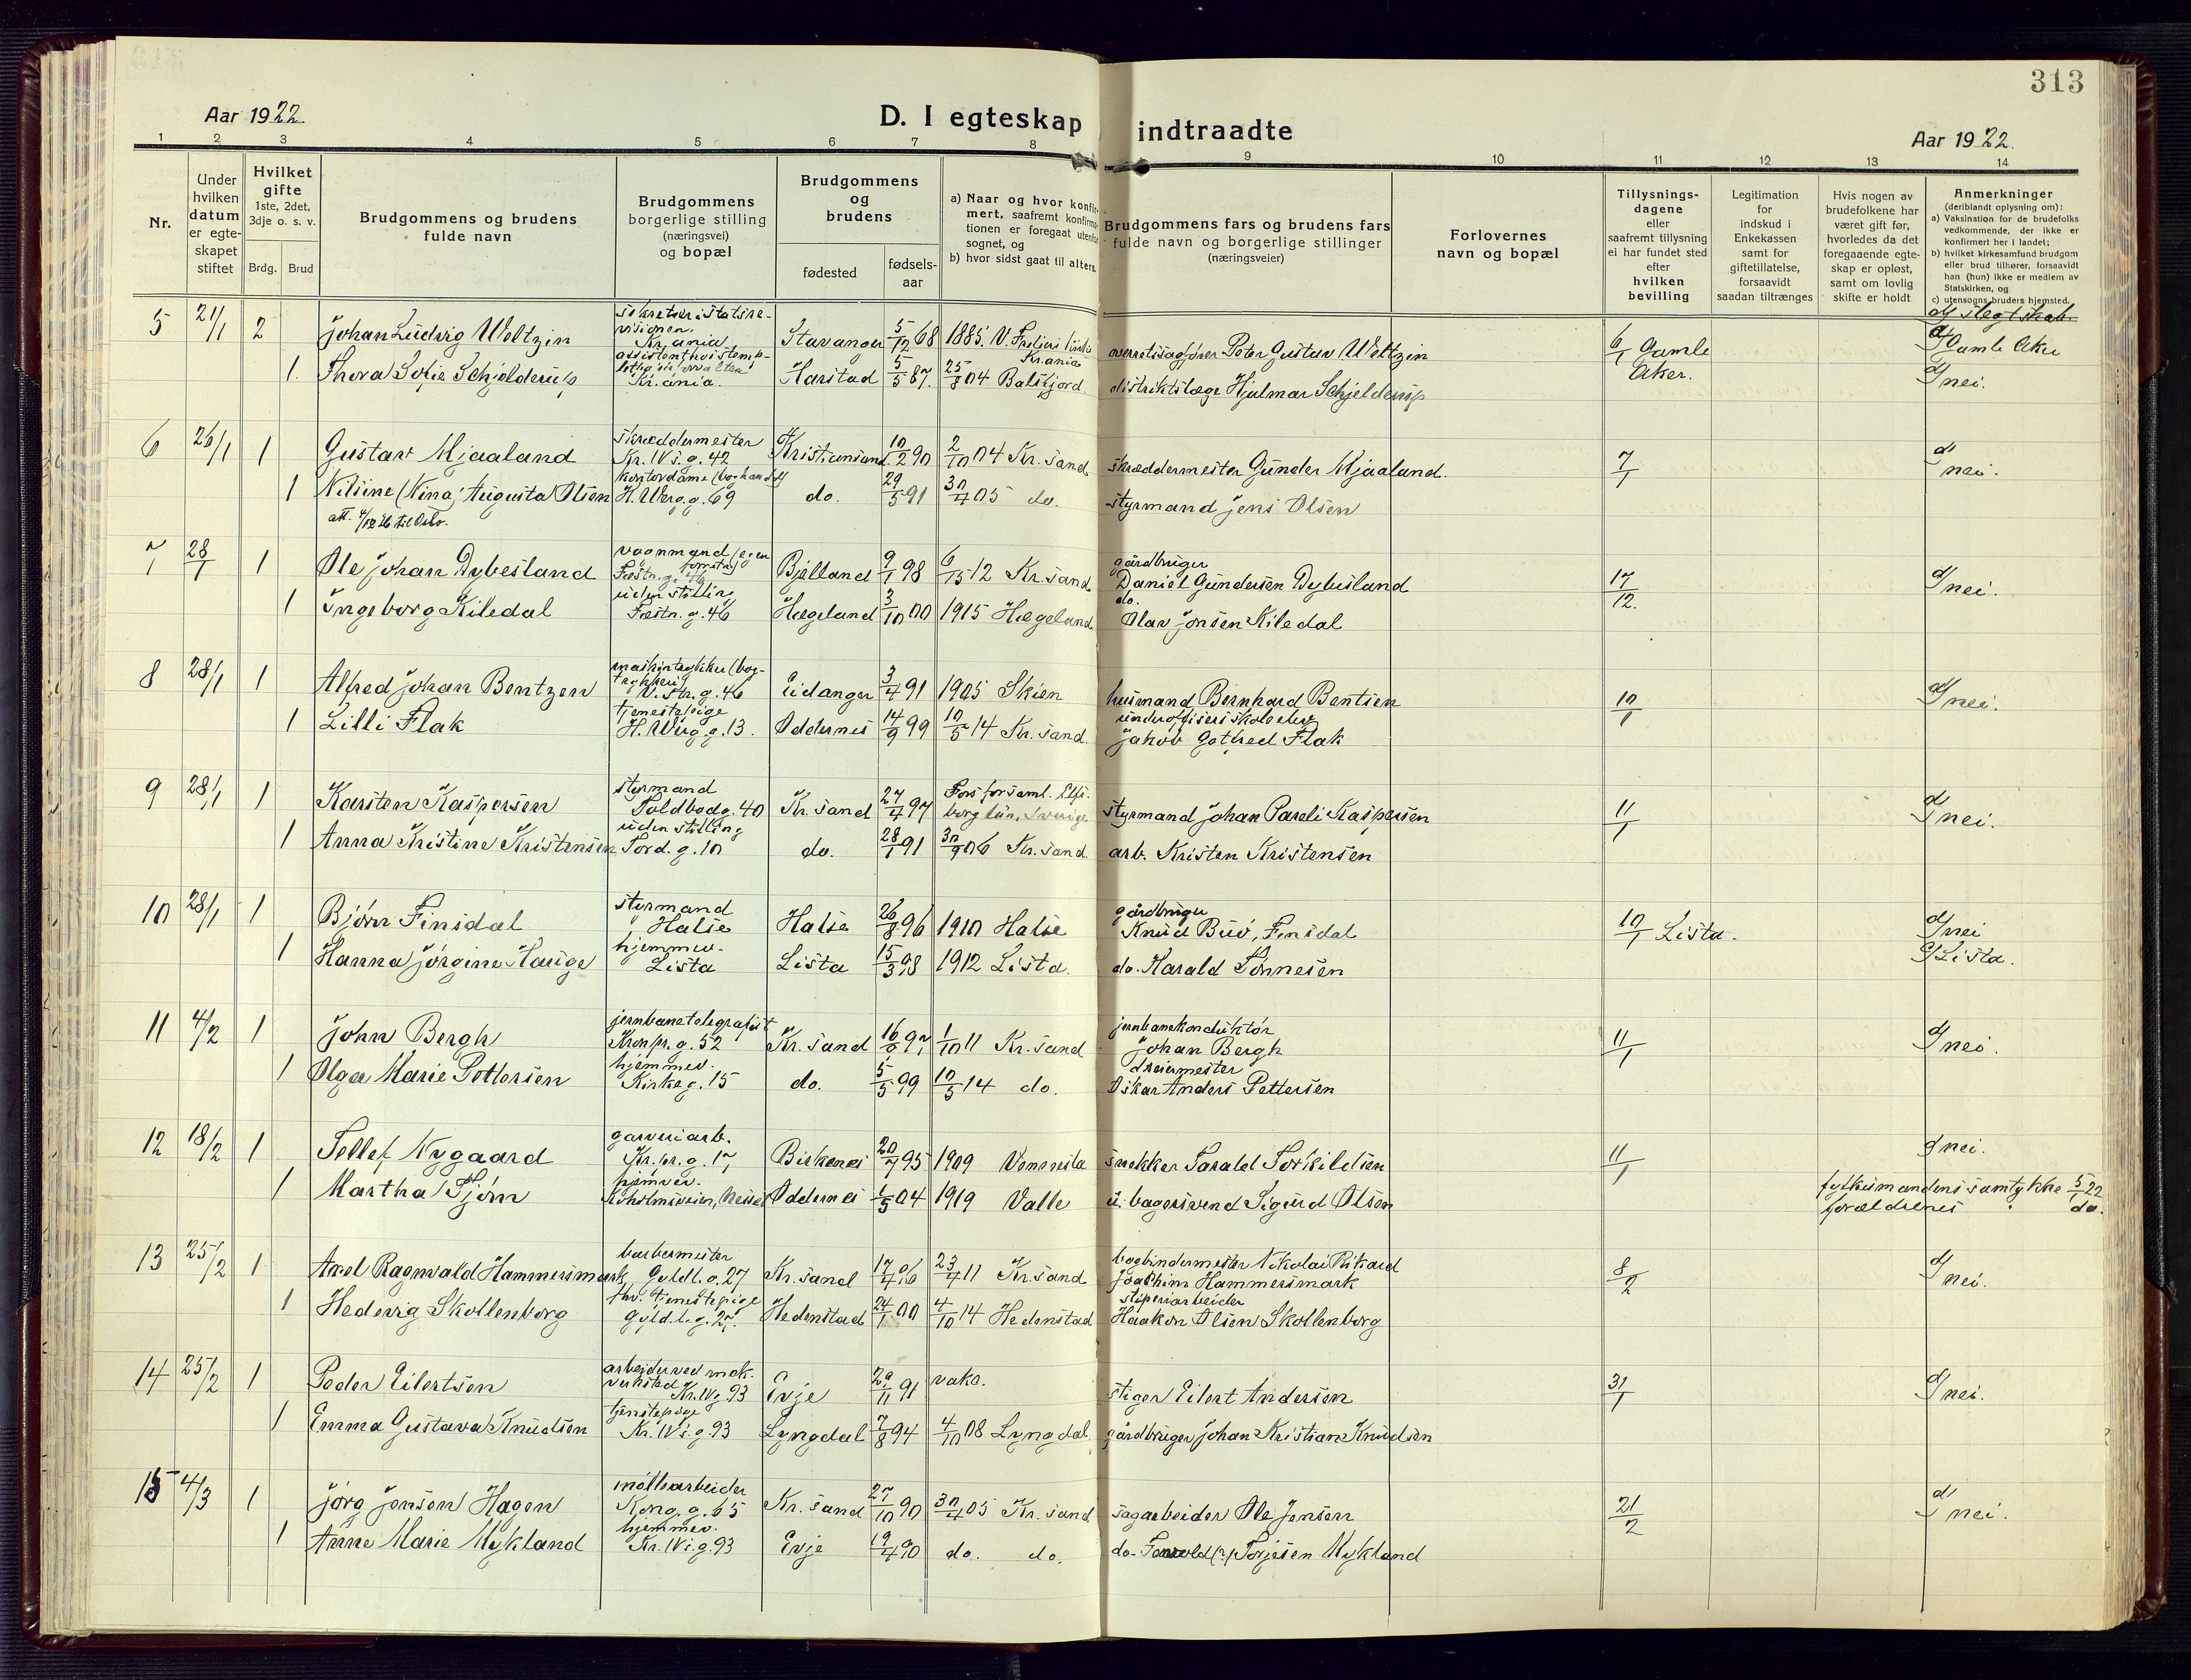 313
Aar 1922
D. I egteskap indtraadte
Aar 1922.
1 2 3 4 5 6 7 8 9 10 11 12 13 14
Nr.
Under hvilken datum er egteskapet stiftet
Hvilket gifte 1ste, 2det, 3dje o. s. v.
Brdg. Brud
Brudgommens og brudens fulde navn
Brudgommens borgerlige stilling (næringsvei) og bopæl
Brudgommens og brudens
fødested
fødsels-aar
a) Naar og hvor konfirmert, saafremt konfirmationen er foregaat utenfor sognet, og
b) hvor sidst gaat til alters.
Brudgommens fars og brudens fars fulde navn og borgerlige stillinger (næringsveier)
Forlovernes navn og bopæl
Tillysnings-dagene eller saafremt tillysning ei har fundet sted efter hvilken bevilling
Legitimation for indskud i Enkekassen samt for giftetillatelse, forsaavidt saadan tiltrænges
Hvis nogen av brudefolkene har været gift før, hvorledes da det foregaaende egteskap er opløst, samt om lovlig skifte er holdt
Anmerkninger
(deriblandt oplysning om):
a) Vaksination for de brudefolks vedkommende, der ikke er konfirmert her i landet;
b) hvilket kirkesamfund brudgom eller brud tilhører, forsaavidt han (hun) ikke er medlem av Statskirken, og
c) utensogns bruders hjemsted.
5 21/1 2 Johan Ludvig Weltzin Kr.ania Stavanger 5/12 68 1885. Kr.ania overretssagfører Peter Gustav Weltzin 6/1 Gamle Aker. Gamle Aker
1. Thora Sofie Schjelderup Kr.ania. Harstad 5/5 87. 25/8 04 Balsfjord distriktslæge Hjalmar Schjelderup nei.
6 26/1 1 Gustav Mjaaland skræddermester Kr. IVs. g. 42 Kristiansand 10/12 90 2/10 04 Kr.sand skræddermester Gunder Mjaaland. 7/1 nei.
1 Nilsine (Nina) Augusta Olsen kontordame H. Werg. g. 69 do. 29/5 91 30/4 05 do. styrmand Jens Olsen
att. 4/12 26 til Oslo.
7 28/1 1 Ole Johan Dybesland vognmand Bjelland 9/1 98 6/15 12 Kr.sand gårdbruger Daniel Gundersen Dybesland 17/12. nei.
1 Ingeborg Kiledal uden stilling Fæstn. g. 46 Hægeland 3/10 00 1915 Hægeland do. Olav Jonsen Kiledal
8 28/1 1 Alfred Johan Bentzen V. str. g. 46 Eidanger 3/4 91 1905 Skien husmand Bernhard Bentsen 10/1 nei.
1 Lilli Flak tjenestepige H. Werg. g. 13. Oddernes 14/9 99 10/5 14 Kr.sand. underoffisersskoleelev Jakob Gotfred Flak
9 28/1 1 Karsten Kaspersen styrmand Toldbodg. 40 Kr.sand 27/4 97 styrmand Johan Pareli Kaspersen 11/1 nei.
1 Anna Kristine Kristensen uden stilling Tord. g. 10 do. 28/1 91 30/9 06 Kr.sand. arb. Kristen Kristensen
10 28/1 1 Bjørn Finsdal styrmand Halse Halse 26/8 96 1910 Halse gårdbruger Knud Buë, Finsdal 10/1 Lista. nei
1 Hanna Jørgine Hauge hjemmev. Lista Lista 15/3 98 1912 Lista. do. Harald Tønnesen Lista.
11 4/2 1 John Bergh jernbanetelegrafist Kronpr. g. 52 Kr.sand 16/8 97 1/10 11 Kr.sand jernbanekonduktør Johan Bergh 11/1 nei.
1 Olga Marie Pettersen hjemmev. Kirkeg. 15 do. 5/5 99 10/5 14 do. dreiermester Oskar Anders Pettersen
12 18/2 1 Tellef Nygaard garveriarb. Kr.pr. g. 17 Birkenes 20/7 95 1909 Vennesla snekker Tarald Torkildsen 11/1 nei.
1 Martha Tjøm hjemmev. Oddernes 1/5 04 1919 Valle u. bagersvend Sigurd Olsen fylkesmandens samtykke 5/1 22 forældrenes do.
13 25/2 1 Axel Ragnvald Hammersmark barbermester Gyldl. g. 27 Kr.sand 17/4 96 23/4 11 Kr.sand bogbindermester Nikolai Rikard Joachim Hammersmark 8/2 nei.
1 Hedevig Skollenborg fhv. tjenestepige Gyld.l. g. 27. Hedenstad 24/1 00 4/10 14 Hedenstad sliperiarbeider Haakon Olsen Skollenborg
14 25/2 1 Peder Eilertsen arbeider ved mek. verksted Kr. IVg. 93 Evje 29/11 91 vaks. stiger Eilert Andersen 31/1 nei.
1 Emma Gustava Knudsen tjenestepige Kr. IVs. g. 93 Lyngdal 7/8 94 4/10 08 Lyngdal gårdbruger Johan Kristian Knudsen
15 4/3 1 Jørg Jensen Hagen møllearbeider Kong. g. 65 Kr.sand 27/10 90 30/4 05 Kr.sand sagarbeider Ole Jensen 21/2 nei.
1 Anne Marie Mykland hjemmev. Kr. IVs. g. 93 Evje 19/4 90 do. do. do. Torjesen Mykland